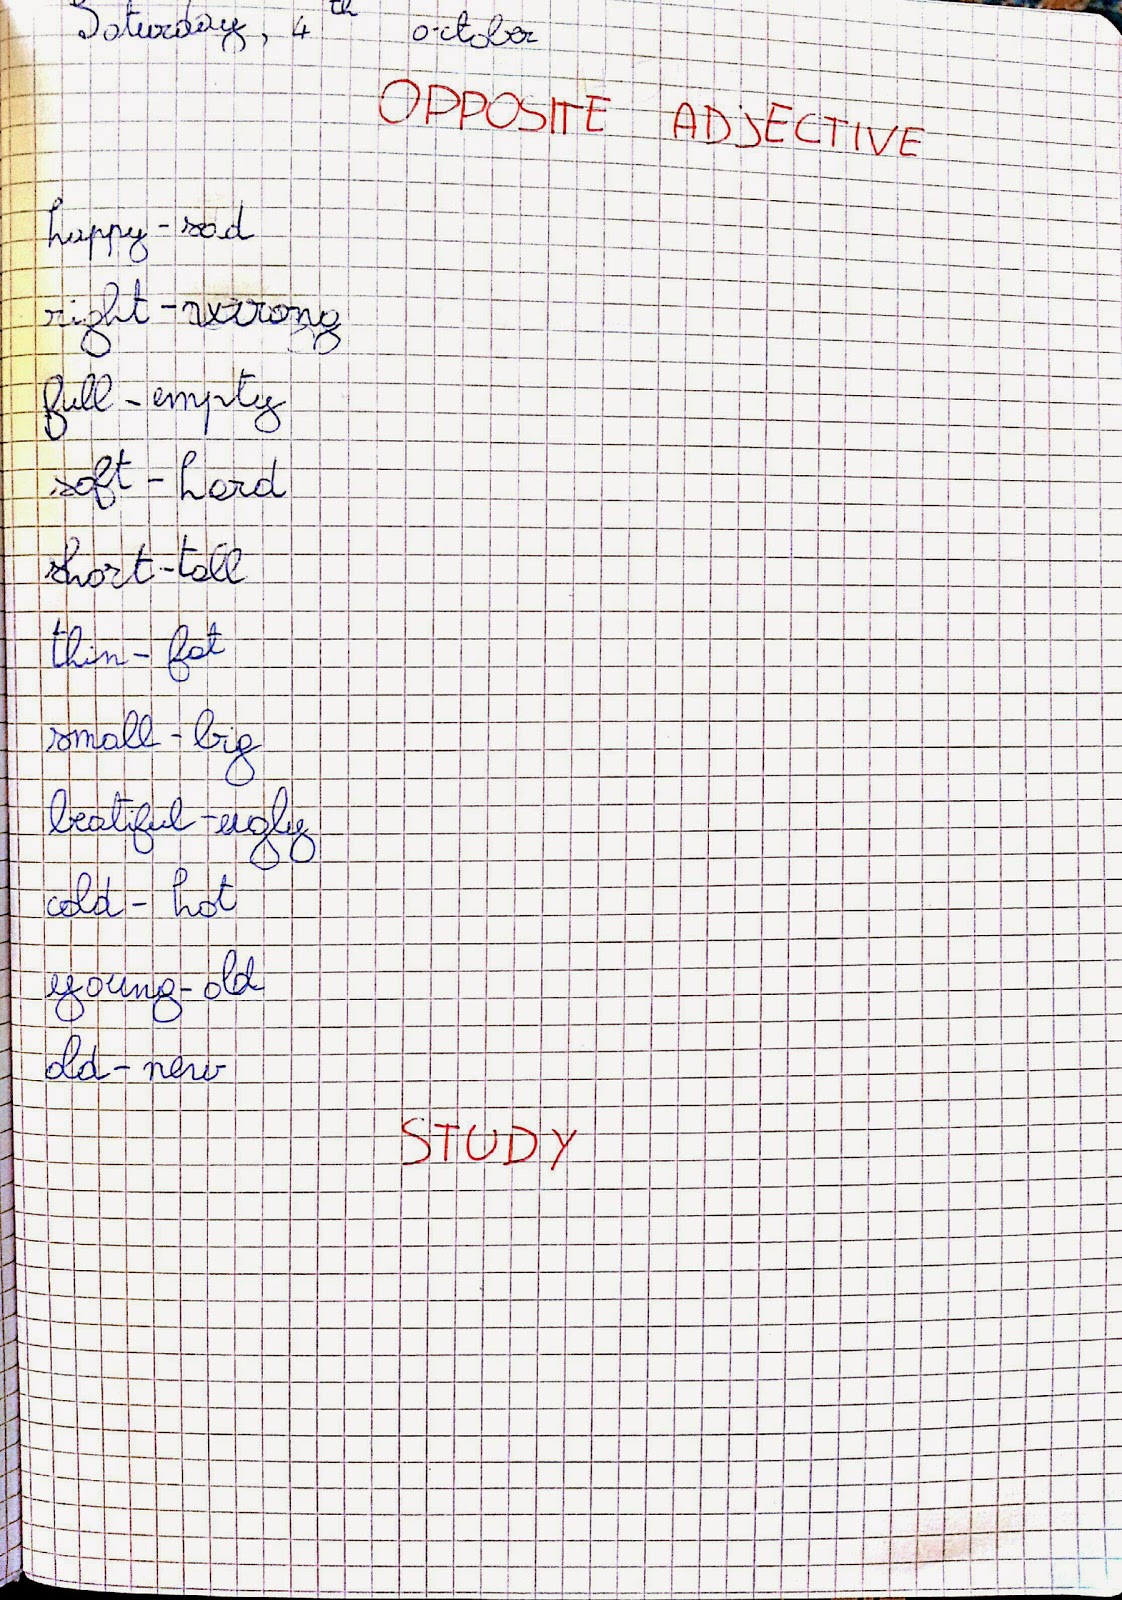 Saturday, 4th october
OPPOSITE ADJECTIVE
happy - sad
right - wrong
full - empty
soft - hard
short - tall
thin - fat
small - big
beatiful - ugly
cold - hot
young - old
old - new
STUDY